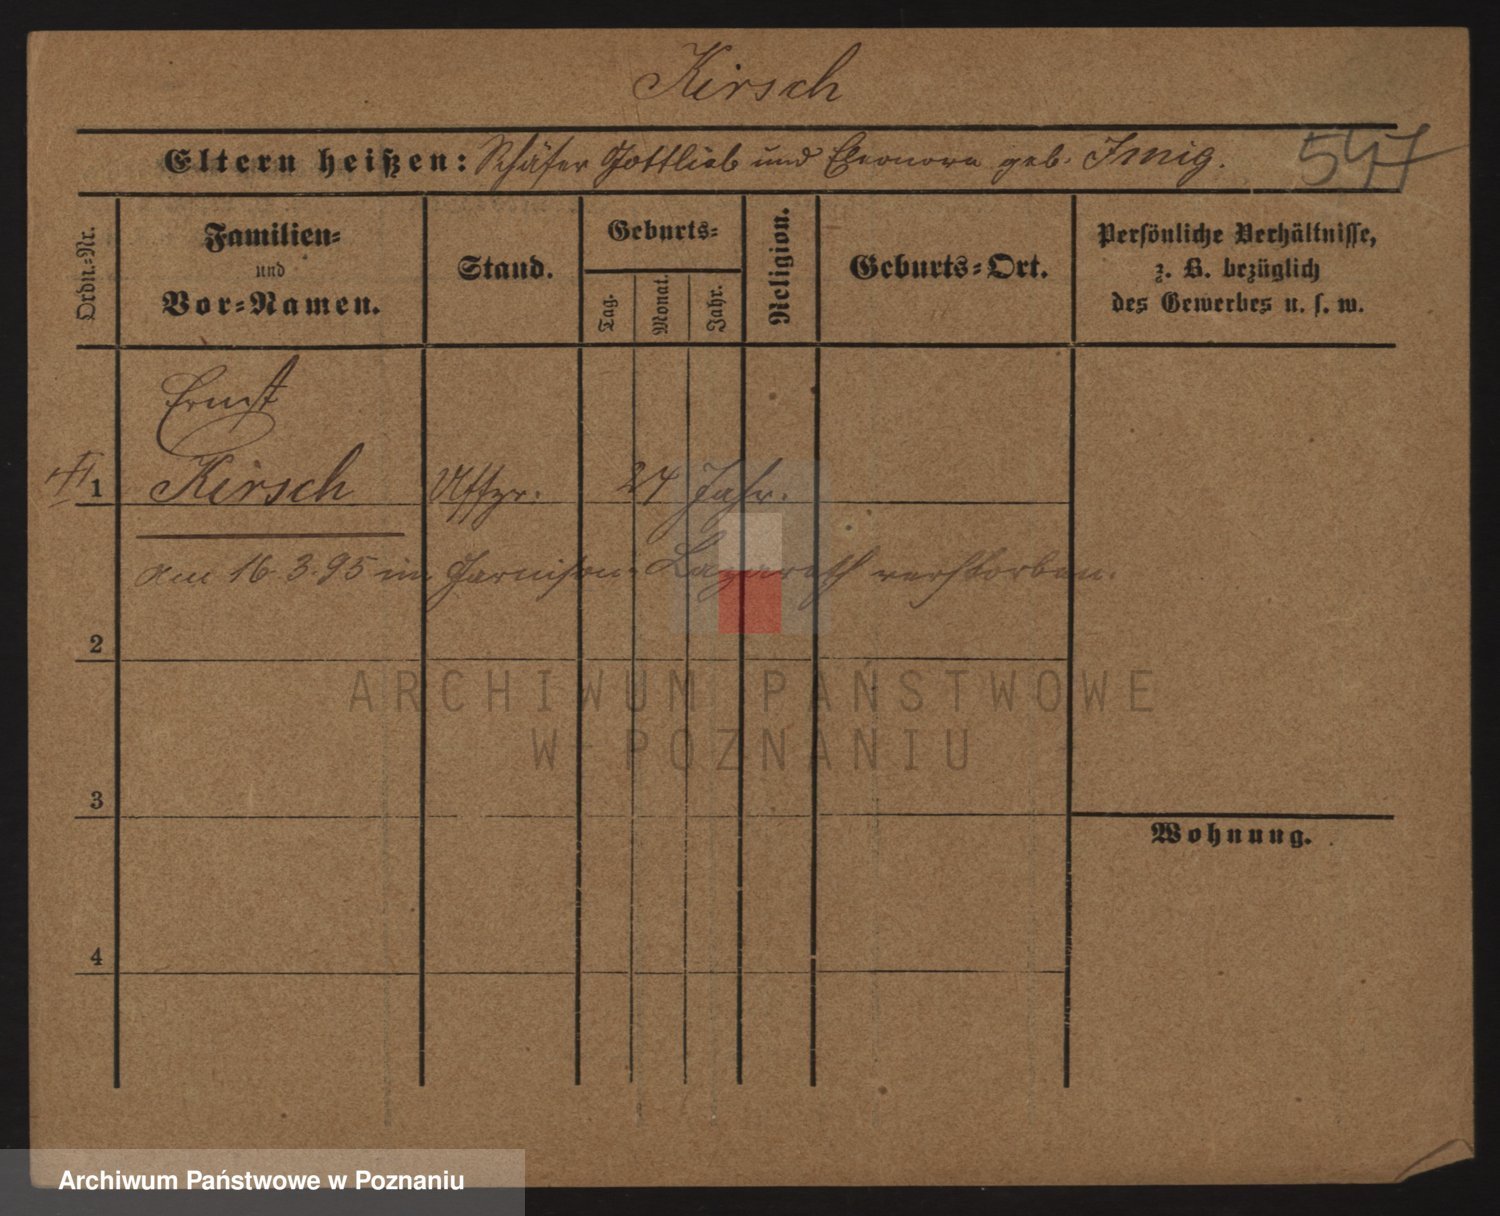 Kirsch
Eltern heißen: Schäfer Gottlieb und Eleonora geb. Irmig.
547
Ordn.-Nr.
Familien-
und
Vor-Namen.
Stand.
Geburts-
Tag.
Monat.
Jahr.
Religion.
Geburts-Ort.
Persönliche Verhältnisse,
z. B. bezüglich
des Gewerbes u. s. w.
Ernst
1 Kirsch Uffzr. 24 Jahr.
am 16.3.95 im Garnison-Lazareth verstorben.
2
3
4
Wohnung.
ARCHIWUM PAŃSTWOWE
W POZNANIU
Archiwum Państwowe w Poznaniu